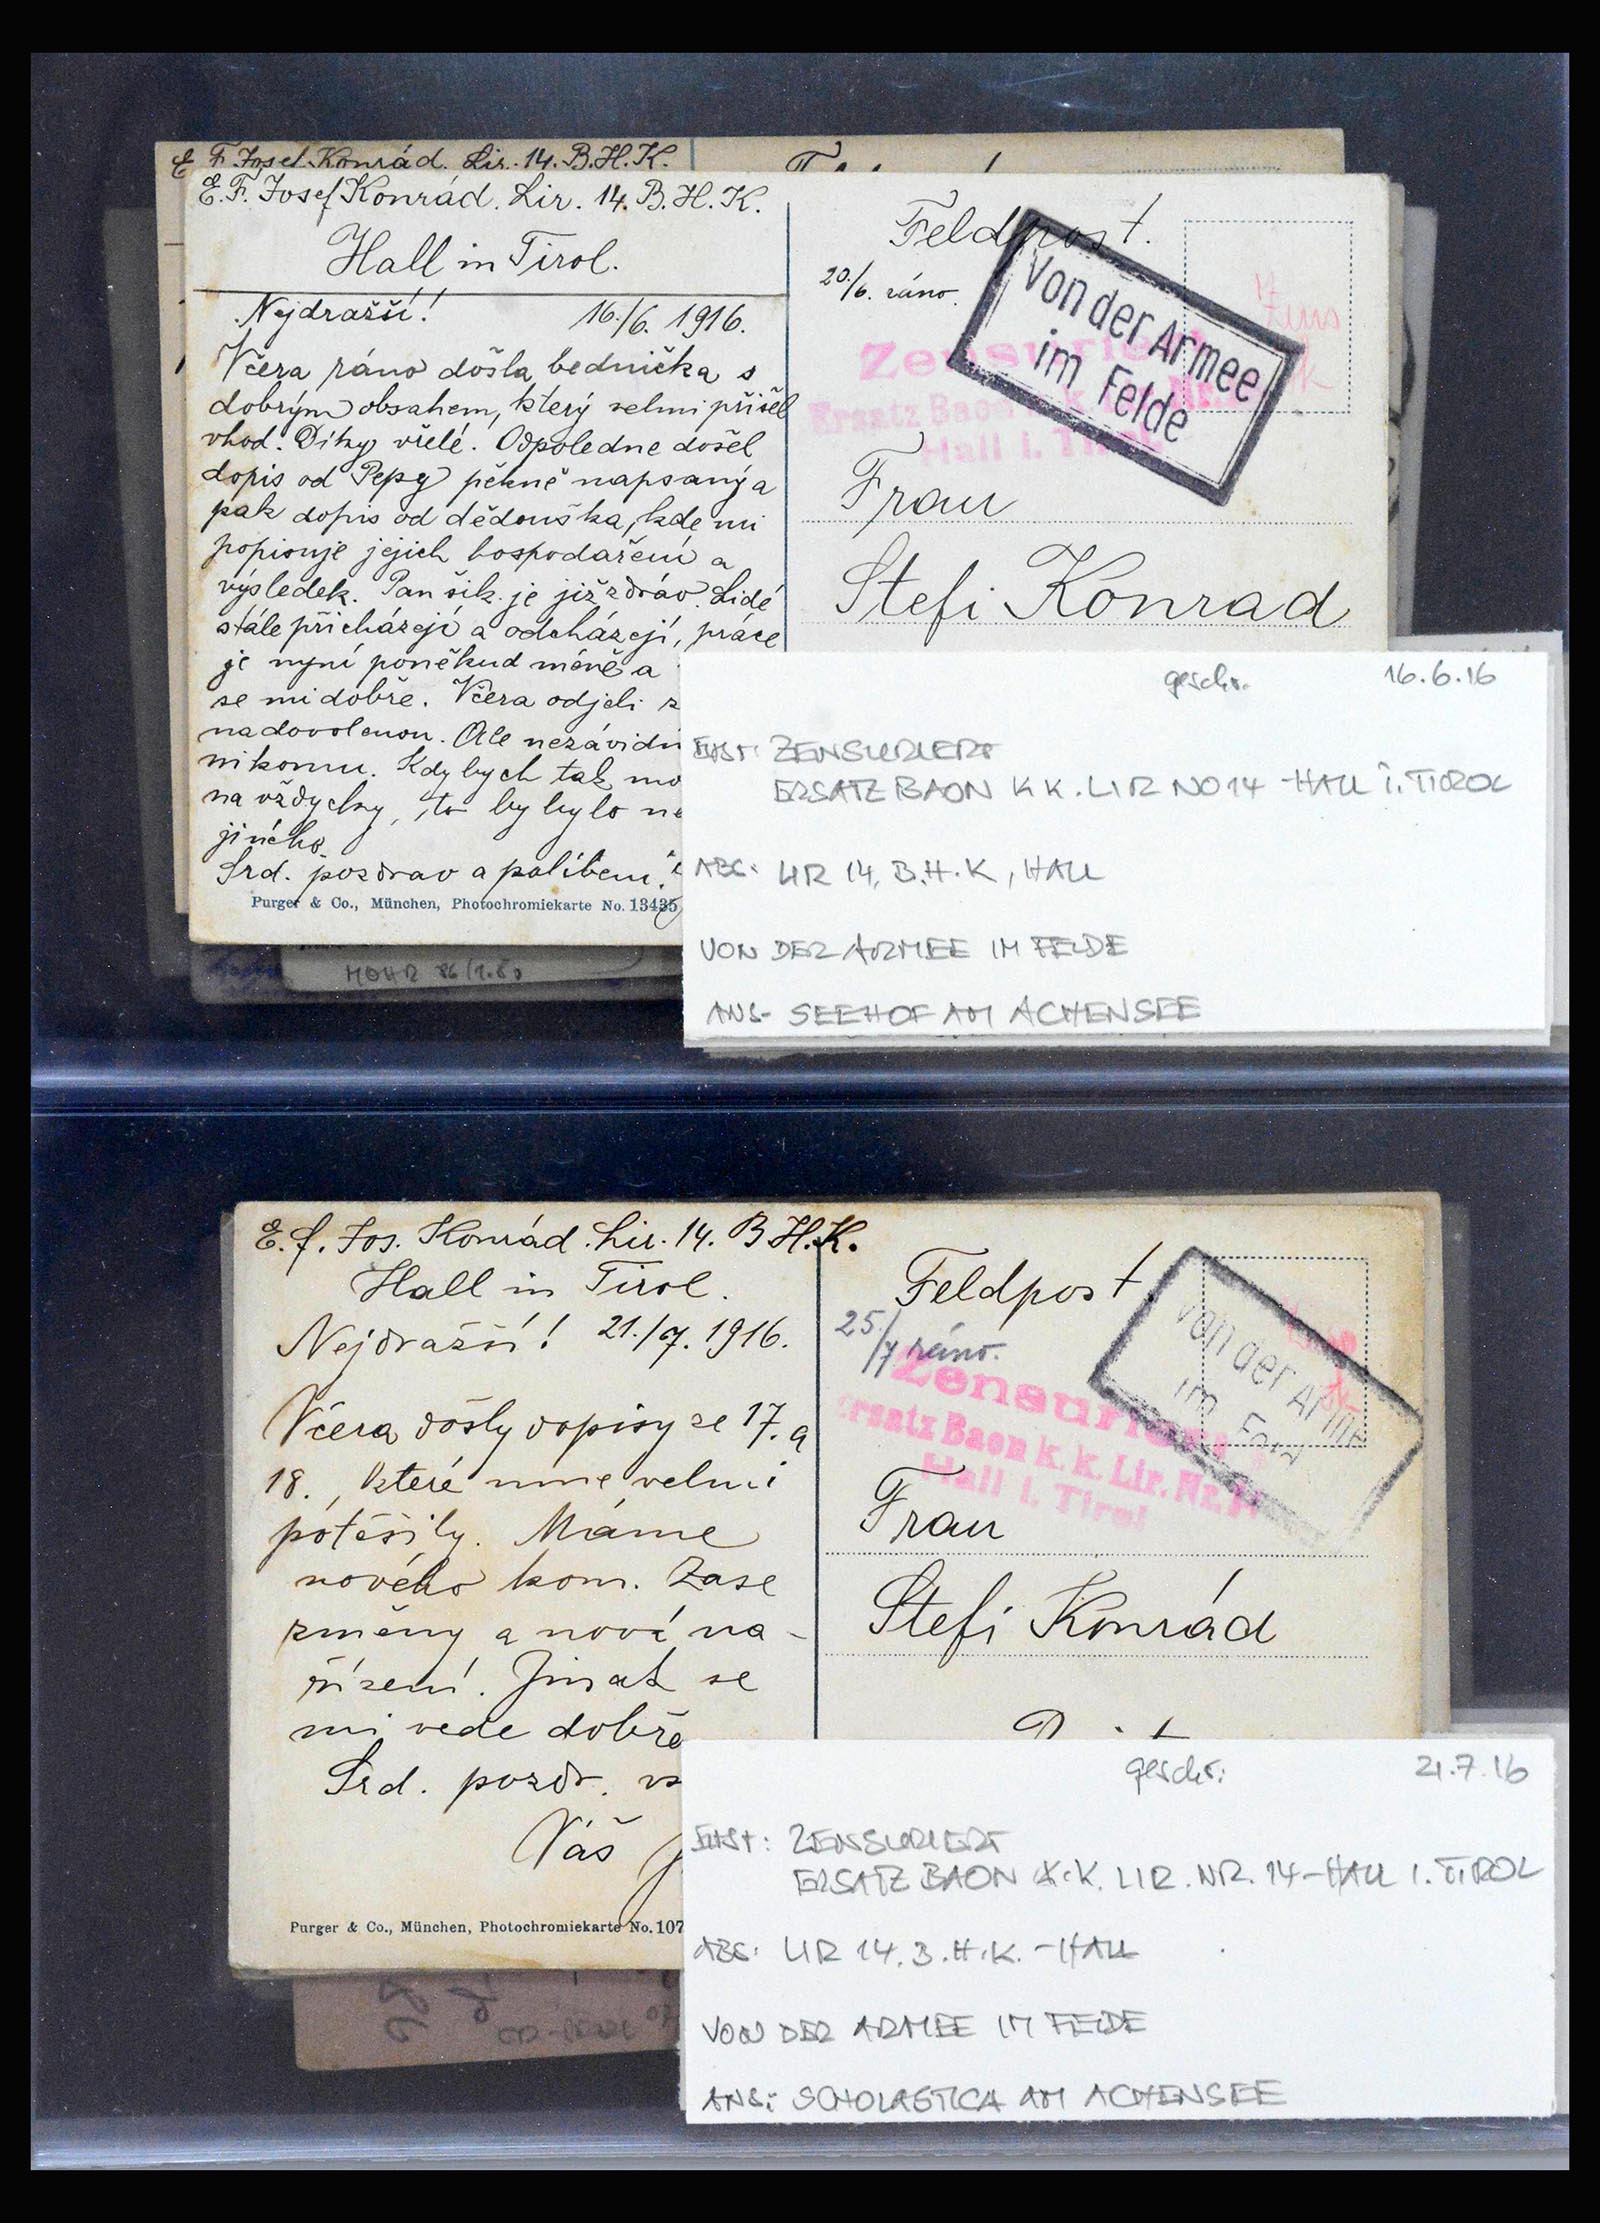 E. F. Josef Konrád. Lir. 14. B.H.K.
E. F. Josef Konrád. Lir. 14. B.H.K.
Hall in Tirol.
Nejdražší! 16./6. 1916.
Včera ráno došla bednička s
dobrým obsahem, který velmi přišel
vhod. Díky vřelé. Odpoledne došel
dopis od Pepy pěkně napsaný a
pak dopis od dědouška, kde mi
popisuje jejich hospodaření a
výsledek. Pan šik. je již zdráv. Lidé
stále přicházejí a odcházejí, práce
je nyní poněkud méně a
se mi dobře. Včera odjeli z
na dovolenou. Ale nezávidí
nikomu. Kdybych tak mo
na vždycky, to by bylo ně
jiného.
Srd. pozdrav a políbení
Purger & Co., München, Photochromiekarte No. 13435
Feldpost.
20./6. ráno.
Zensuriert
Ersatz Baon k. k. Lir. Nr.
Hall i. Tirol
Von der Armee
im Felde
Frau
Stefi Konrad
MOHR 86/1.50
geschr. 16.6.16
ZENSURIERT
ERSATZ BAON K K. LIR NO 14 - HALL i. TIROL
ABS: LIR 14, B.H.K, HALL
VON DER ARMEE IM FELDE
ANS- SEEHOF AM ACHENSEE
E. f. Jos. Konrád. Lir. 14. B H.K.
Hall in Tirol.
Nejdražší! 21./7. 1916.
Včera došly dopisy ze 17. a
18., které mne velmi
potěšily. Máme
nového kom. Zase
změny a nová na-
řízení. Jinak se
mi vede dobře
Srd. pozdr. vš
Váš
Purger & Co., München, Photochromiekarte No. 107
Feldpost.
25./7 ráno.
Zensuriert
Ersatz Baon k. k. Lir. Nr. 14
Hall i. Tirol
Von der Armee
im Feld
Frau
Stefi Konrád
geschr: 21.7.16
ZENSURIERT
ERSATZ BAON K.K. LIR. NR. 14 - HALL I. TIROL
ABS: LIR 14. B.H.K. - HALL
VON DER ARMEE IM FELDE
ANS: SCHOLASTICA AM ACHENSEE